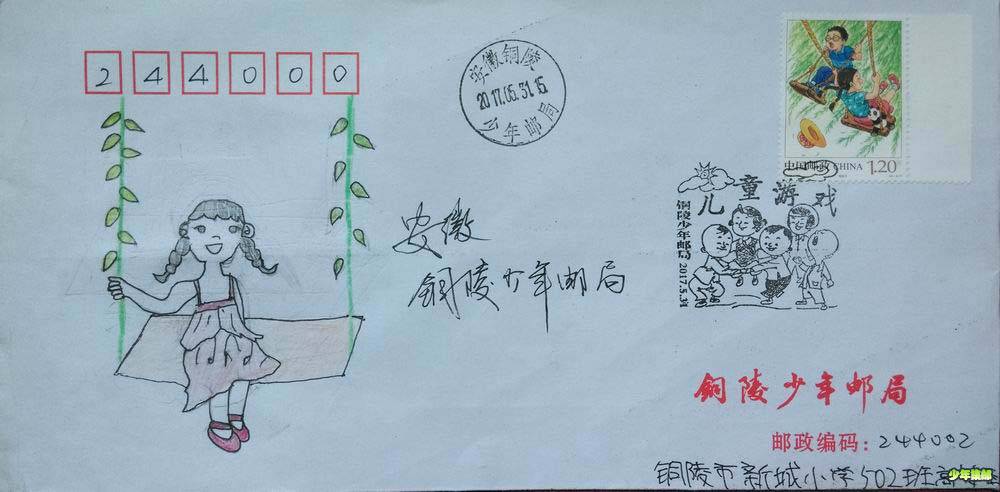 244000
安徽铜陵
2017.05.31.15
少年邮局
中国邮政 CHINA 1.20
儿童游戏
铜陵少年邮局 2017.5.31
安徽
铜陵少年邮局
铜陵少年邮局
邮政编码: 244002
铜陵市新城小学502班高
少年集邮